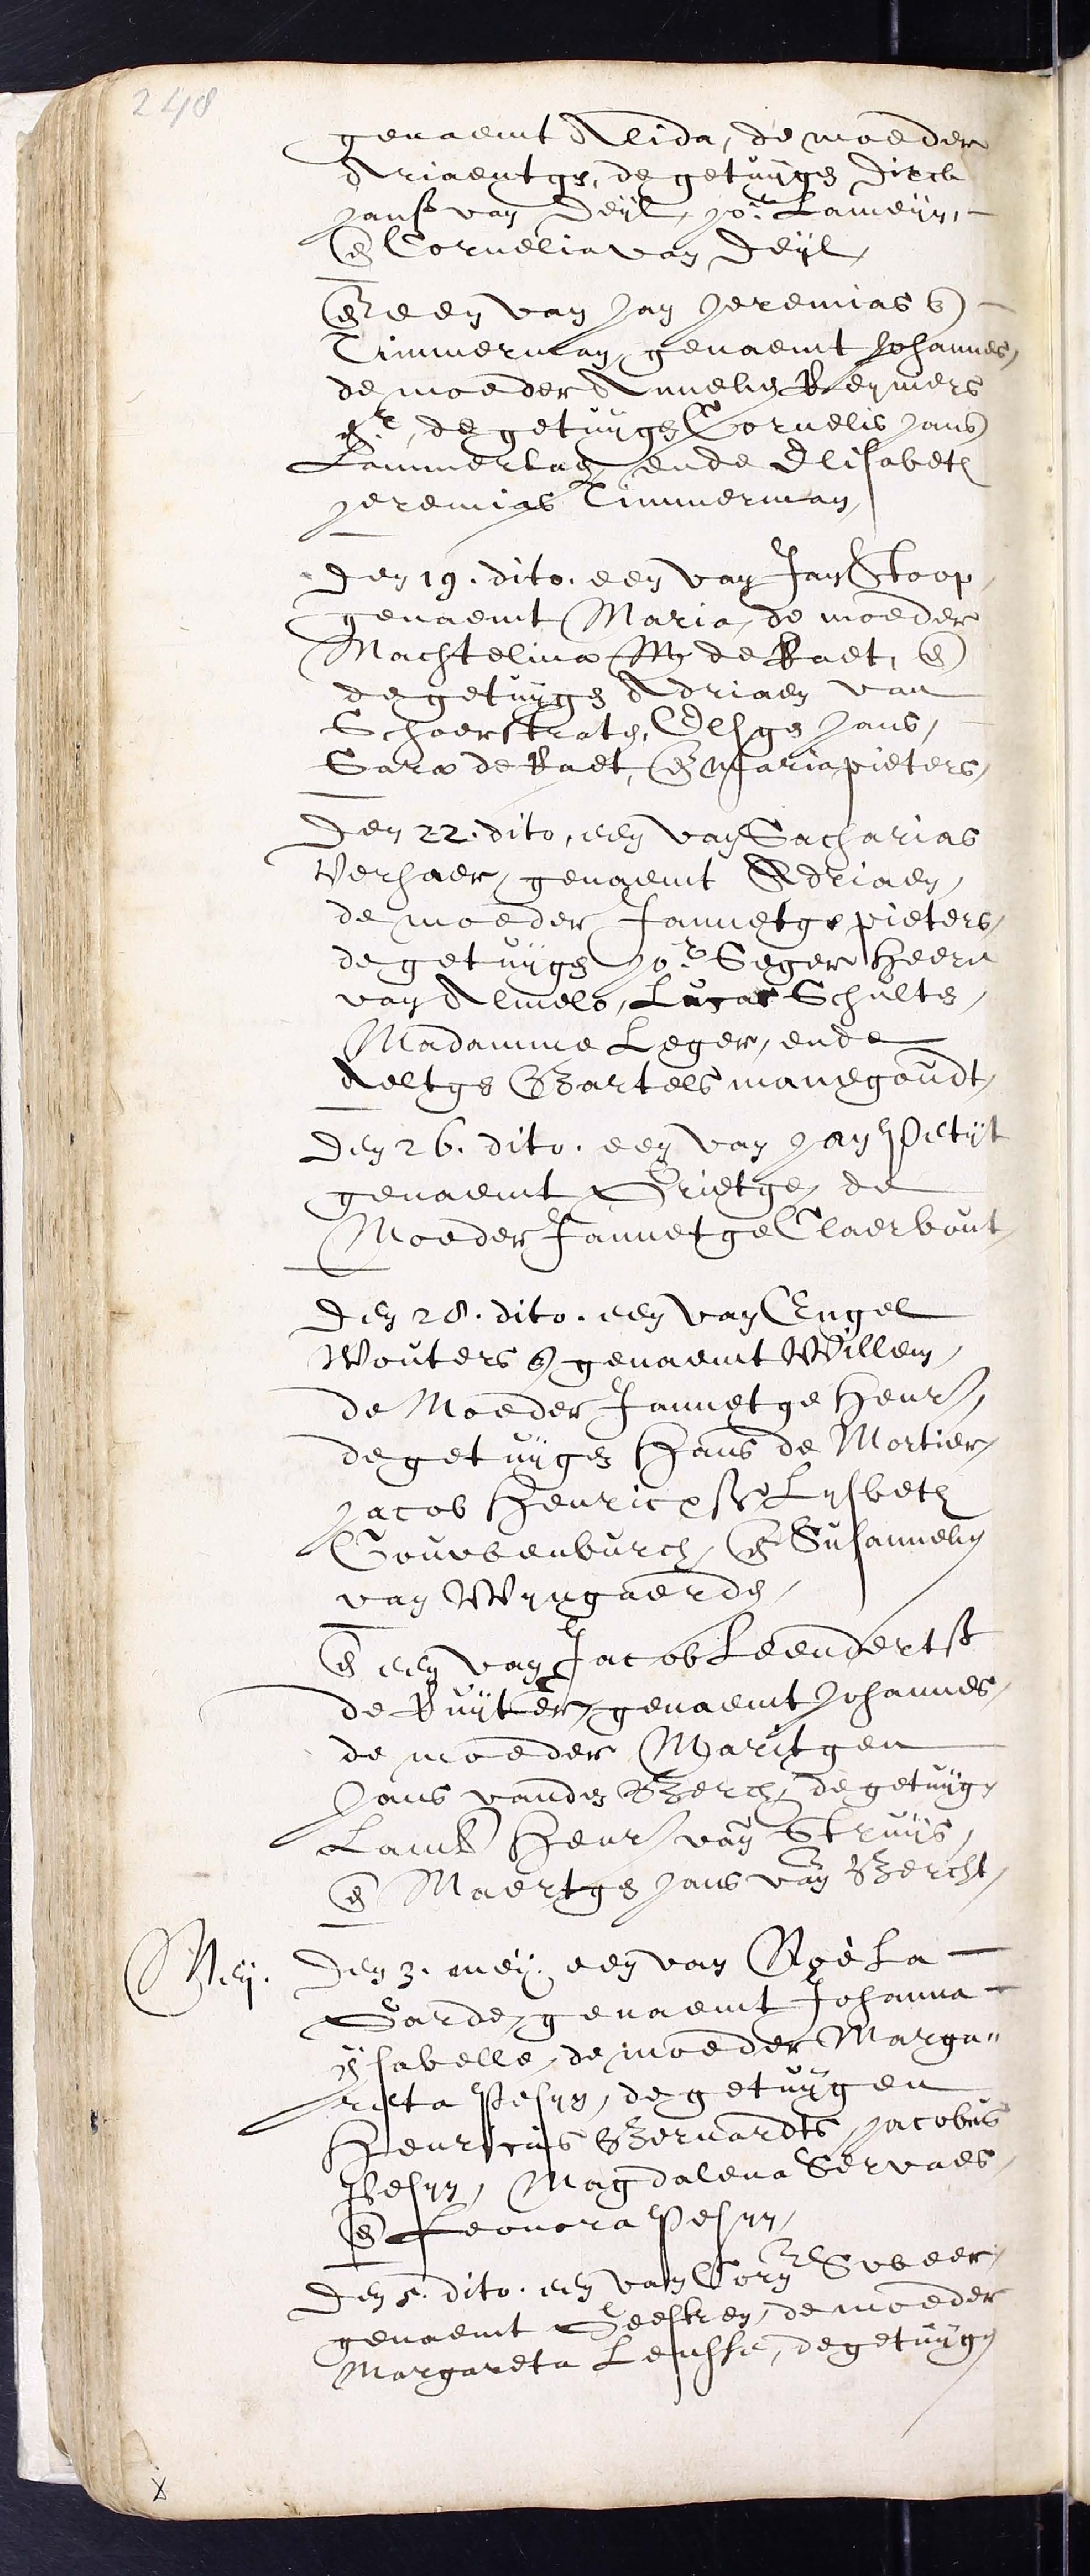 248
genaemt Alida, de moeder
Ariaentge, de getuijge Dirck
Janss van Deijl, Jor. Lameijn,
en Cornelia van Deijl,
En een van Jan Jeremias
Timmerman, genaemt Johannes,
de moeder Anneken Reijniers
de getuijge Cornelis Jans
ende Elisabeth
Jeremias Timmerman,
Den 19. dito. een van Jan Stoop,
genaemt Maria, de moeder
Machtelina de Raet, en
de getuijge Adriaen van
Schoerstrate, Jans,
Sara de Raet, en Maria pieters,
Den 22. dito, een van Sacharias
Verhaer, genaemt Adriaen,
de moeder Jannetge pieters,
de getuijge Jor. Seger Heere
van Almelo, Lucas Schulte,
Madamme Leger, ende
Aeltge Bartels manegoudt,
Den 26. dito. een van Jan Petijt
genaemt Grietge, de
Moeder Jannetge Claerbout,
Den 28. dito. een van Engel
Wouters genaemt Willem,
de Moeder Jannetge Henr,
de getuijge Hans de Mortier,
Jacob Henricxss Lysbeth
Couwenburch, en Susanneken
van Wyngaerde,
en een van Jacob Leendertss
de Ruijter, genaemt Johannes,
de moeder Maritgen
Jans vande Berch, de getuijgen
Lamb Henr van Struijs,
en Maertge Jans van Bercht,
Meij. Den 3. meij. een van Noë La
Garde, genaemt Johanna
ysabelle, de moeder Marga"
rita Pesyn, de getuijgen
Henricus Bernardts, Jacobus
Pesyn, Magdalena Servaes,
en Leonora Pesyn,
Den 5. dito. een van Corn
genaemt Geestken, de moeder
Margareta de getuijgen